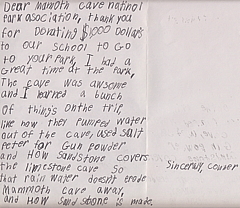 Dear Mamoth cave natinol
park asociation, thank you
for Donating $1000 dollars
to our school to Go
to your park, I had a
Great time at the park,
The cave was awsome
and I larned a bunch
of things onthe trip
like how they pumped water
out of the cave, used salt
peter for Gun powder
and How sandstone covers
the limestone cave so
that rain water doesn't erode
Mammoth cave away,
and how sandstone is made.
Sincerely,